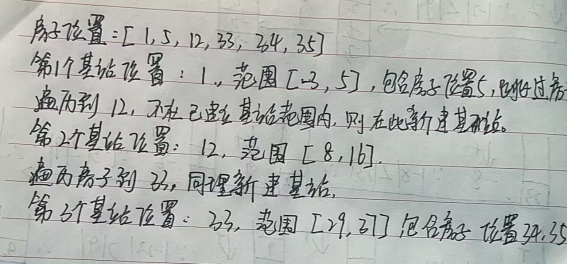 房子位置:[1,5,12,33,34,35]
第1个基站位置:1,范围[-3,5],包含房子位置5,跳过房
遍历到12,不在已建立基站范围内,则在此新建基站。
第2个基站位置:12,范围[8,16].
遍历房子到33,同理新建基站.
第3个基站位置:33,范围[29,37]包含房子位置34,35